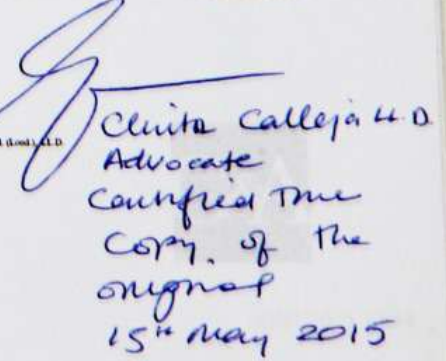 (Lond.), LL.D
Clinita Calleja LL.D
Advocate
Certified True
Copy. of the
original
15th May 2015